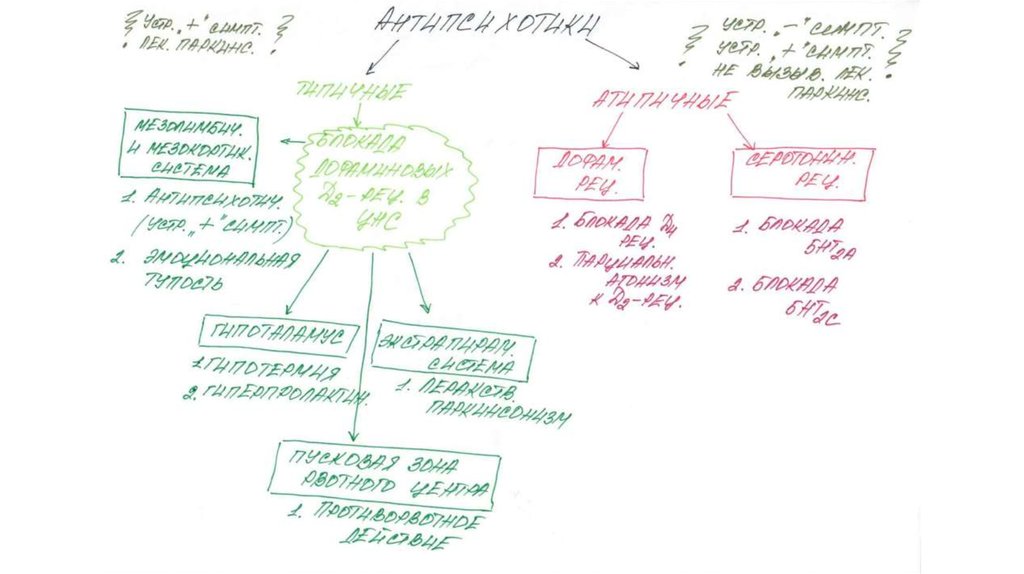 АНТИПСИХОТИКИ
! УСТР. „+" СИМПТ. !
ЛЕК. ПАРКИНС.
! УСТР. „–" СИМПТ. !
УСТР. „+" СИМПТ.
НЕ ВЫЗЫВ. ЛЕК.
ПАРКИНС.
ТИПИЧНЫЕ
БЛОКАДА
ДОФАМИНОВЫХ
D2-РЕЦ. В
ЦНС
МЕЗОЛИМБИЧ.
И МЕЗОКОРТИК.
СИСТЕМА
1. АНТИПСИХОТИЧ.
(УСТР. „+" СИМПТ.)
2. ЭМОЦИОНАЛЬНАЯ
ТУПОСТЬ
ГИПОТАЛАМУС
1. ГИПОТЕРМИЯ
2. ГИПЕРПРОЛАКТИН.
ЭКСТРАПИРАМ.
СИСТЕМА
1. ЛЕКАРСТВ.
ПАРКИНСОНИЗМ
ПУСКОВАЯ ЗОНА
РВОТНОГО ЦЕНТРА
1. ПРОТИВОРВОТНОЕ
ДЕЙСТВИЕ
АТИПИЧНЫЕ
ДОФАМ.
РЕЦ.
1. БЛОКАДА D4
РЕЦ.
2. ПАРЦИАЛЬН.
АГОНИЗМ
К D2-РЕЦ.
СЕРОТОНИН.
РЕЦ.
1. БЛОКАДА
5НТ2А
2. БЛОКАДА
5НТ2С